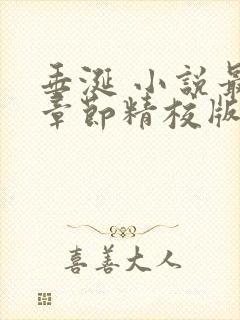 垂涎 小説最
章節精校版
喜善大人